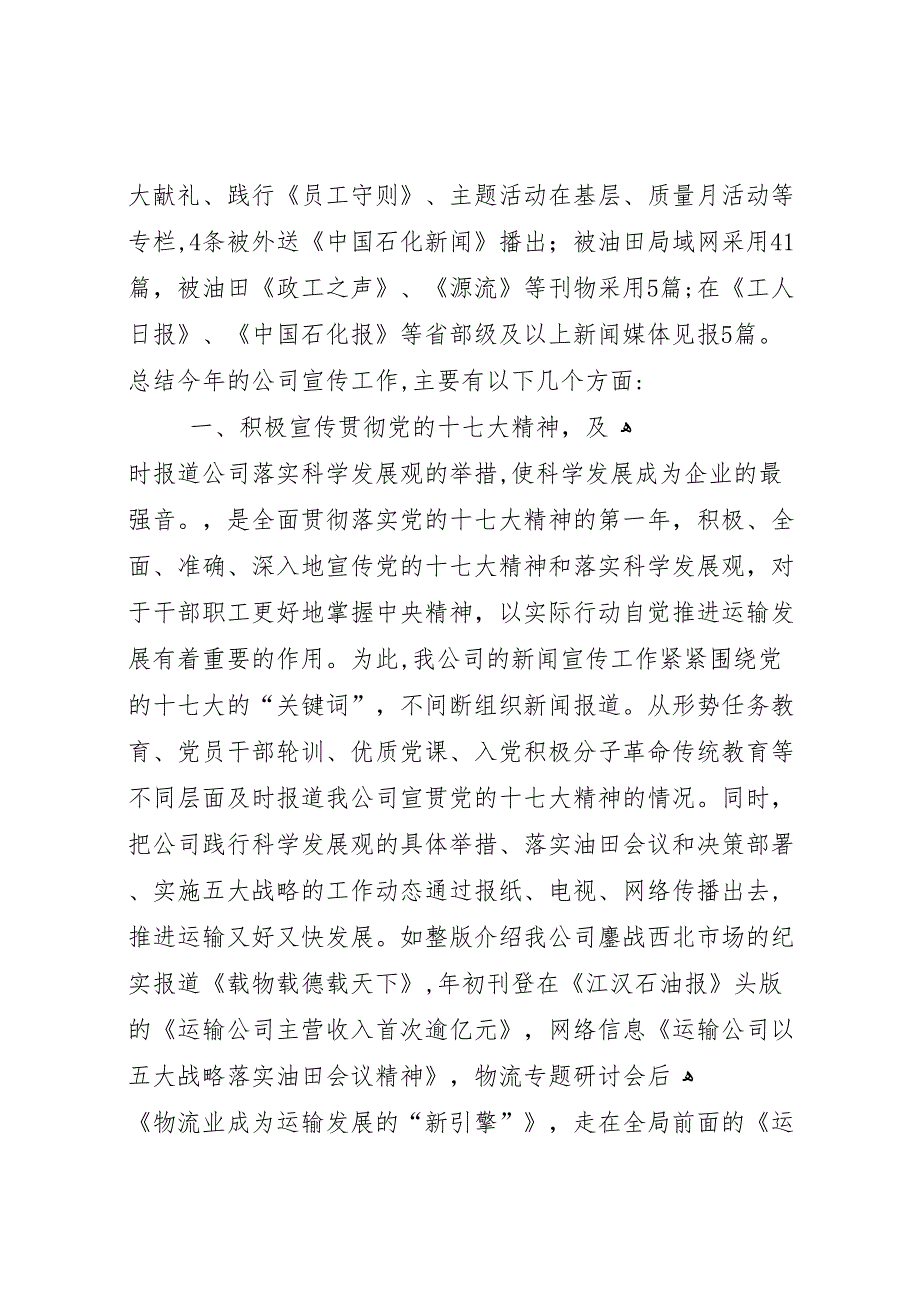 大献礼、践行《员工守则》、主题活动在基层、质量月活动等
专栏,4条被外送《中国石化新闻》播出；被油田局域网采用41
篇，被油田《政工之声》、《源流》等刊物采用5篇;在《工人
日报》、《中国石化报》等省部级及以上新闻媒体见报5篇。
总结今年的公司宣传工作,主要有以下几个方面:
一、积极宣传贯彻党的十七大精神，及 ﻫ
时报道公司落实科学发展观的举措,使科学发展成为企业的最
强音。，是全面贯彻落实党的十七大精神的第一年，积极、全
面、准确、深入地宣传党的十七大精神和落实科学发展观，对
于干部职工更好地掌握中央精神，以实际行动自觉推进运输发
展有着重要的作用。为此,我公司的新闻宣传工作紧紧围绕党
的十七大的“关键词”，不间断组织新闻报道。从形势任务教
育、党员干部轮训、优质党课、入党积极分子革命传统教育等
不同层面及时报道我公司宣贯党的十七大精神的情况。同时，
把公司践行科学发展观的具体举措、落实油田会议和决策部署
、实施五大战略的工作动态通过报纸、电视、网络传播出去，
推进运输又好又快发展。如整版介绍我公司鏖战西北市场的纪
实报道《载物载德载天下》,年初刊登在《江汉石油报》头版
的《运输公司主营收入首次逾亿元》，网络信息《运输公司以
五大战略落实油田会议精神》，物流专题研讨会后 ﻫ
《物流业成为运输发展的“新引擎”》，走在全局前面的《运